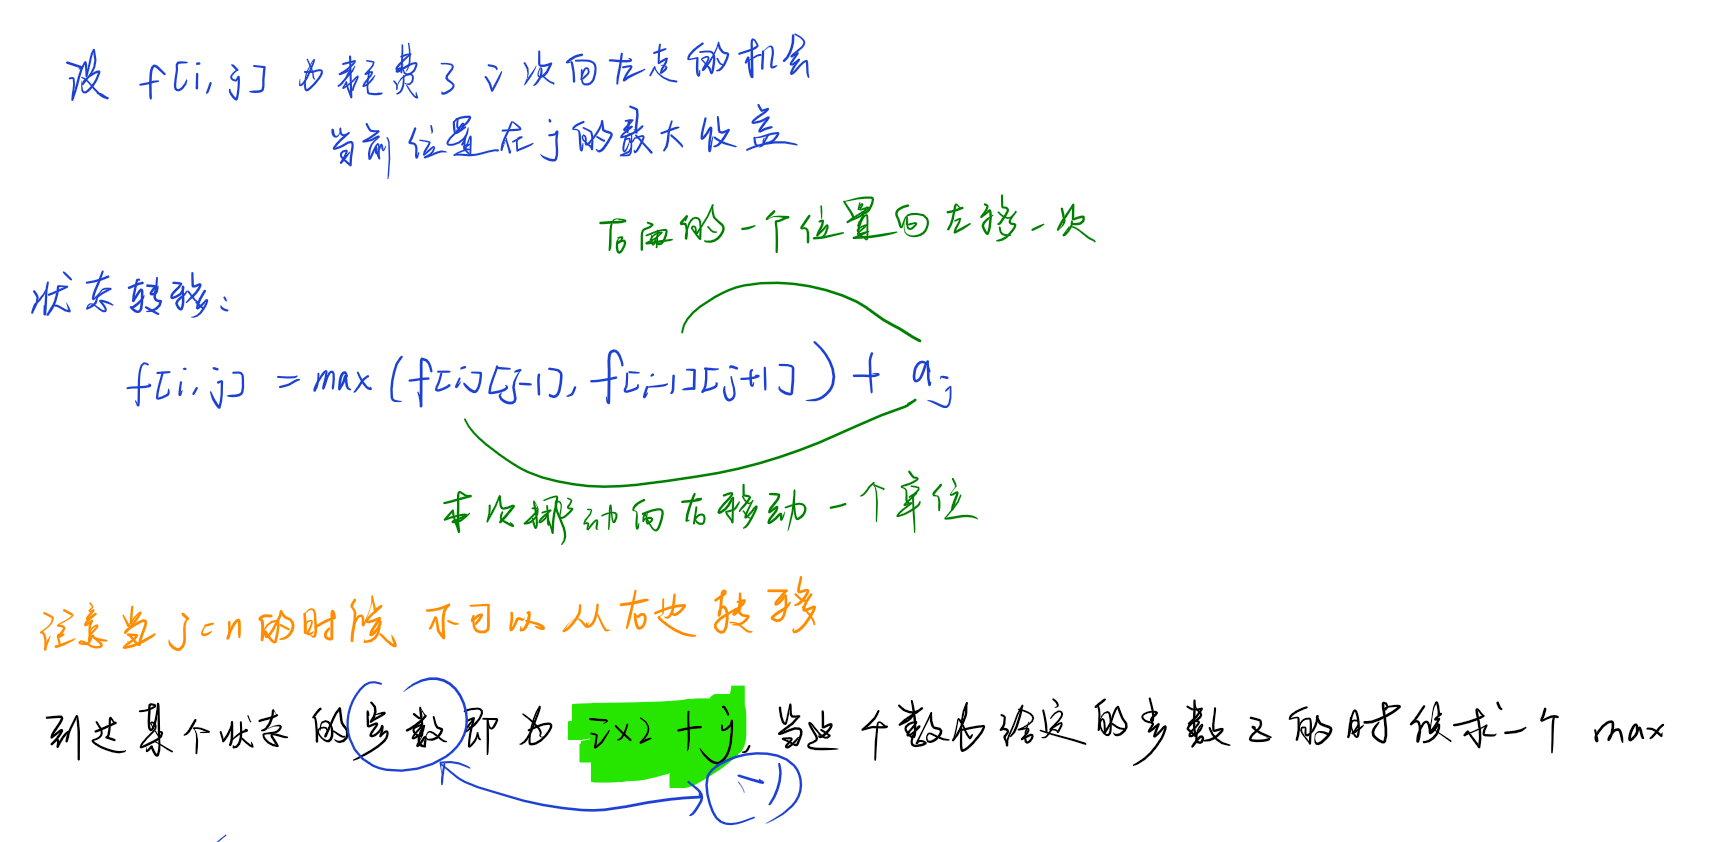 设 f[i, j] 为耗费了 i 次向左走的机会
当前位置在 j 的最大收益
右面的一个位置向左移一次
状态转移:
f[i, j] = max (f[i][j-1], f[i-1][j+1]) + aj
本次挪动向右移动一个单位
注意当 j = n 的时候 不可以从右边转移
到达某个状态的步数即为 i×2 + j, 当这个数为给定的步数 z 的时候求一个 max
-1